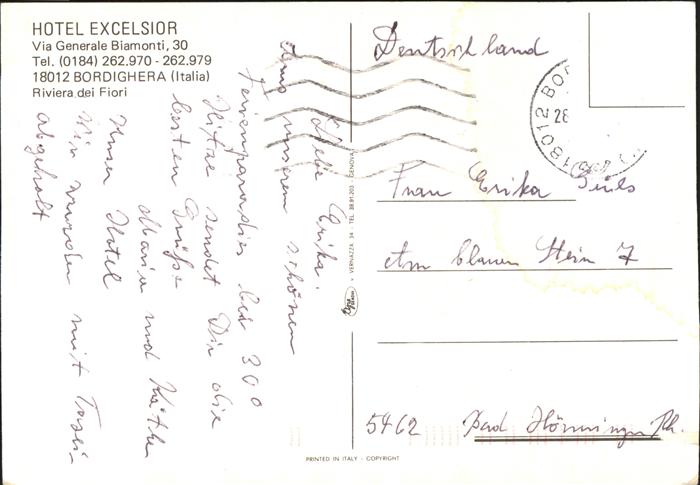 HOTEL EXCELSIOR
Via Generale Biamonti, 30
Tel. (0184) 262.970 - 262.979
18012 BORDIGHERA (Italia)
Riviera dei Fiori
Liebe Erika.
Aus unserem schönen
Ferienparadies bei 30°
Hitze sendet Dir die
besten Grüße
Maria und Käthe
Unser Hotel
Wir wurden mit Taxi-
abgeholt
VERNAZZA, 34 - TEL. 88.91.203 - GENOVA
Deutschland
18012 BOR
28
Frau Erika
Am blauen Stein 7
5462 Bad Hönningen Rh.
PRINTED IN ITALY - COPYRIGHT